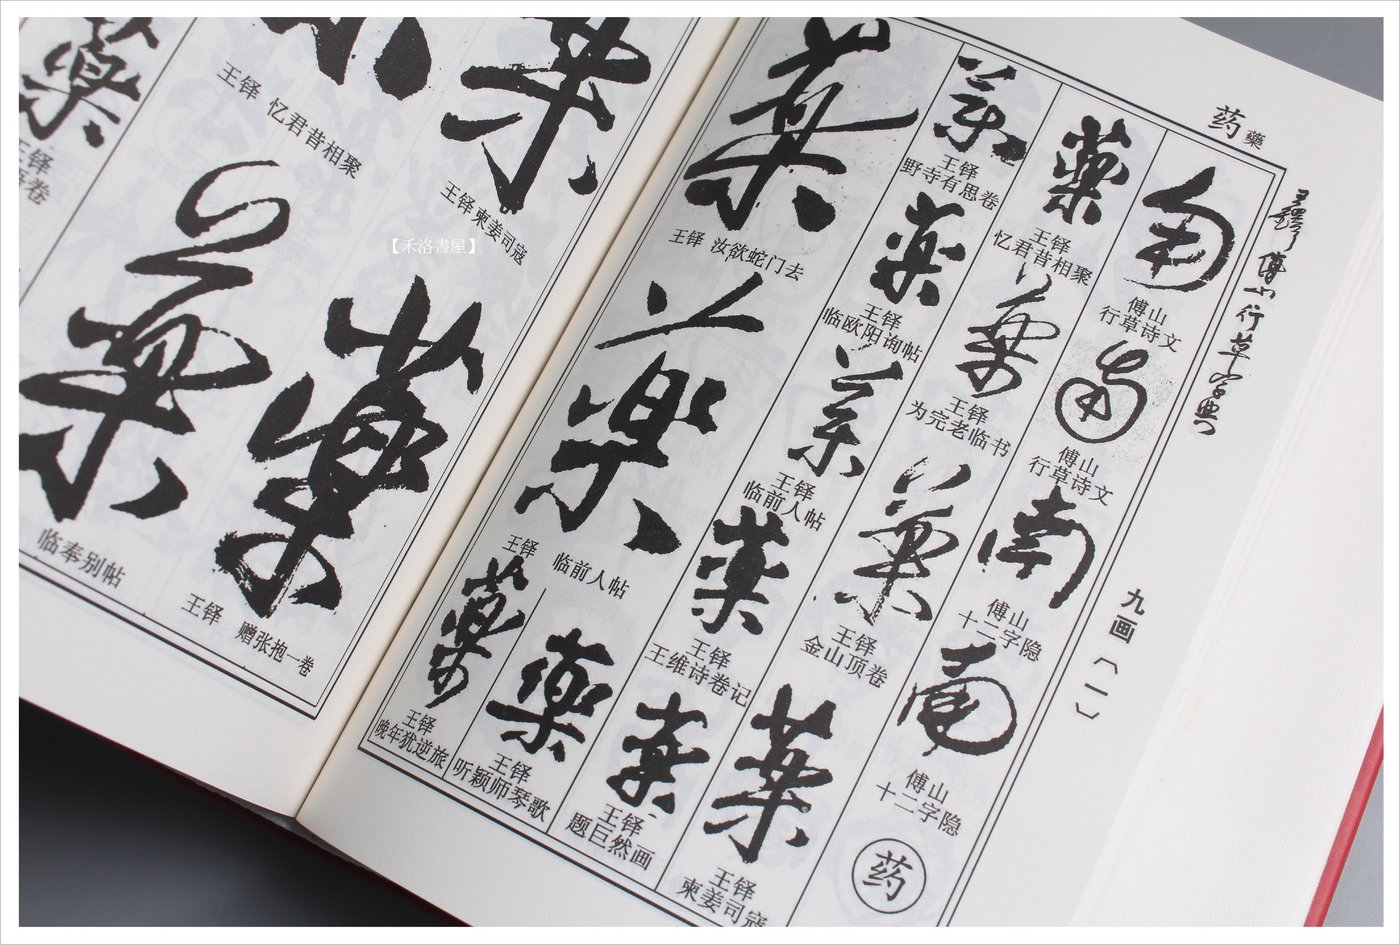 药 藥
王铎傅山行草字典
九画（一）
南
傅山
行草诗文
南
傅山
行草诗文
南
傅山
十二字隐
南
傅山
十二字隐
药
藥
王铎
忆君昔相聚
藥
王铎
为完老临书
藥
王铎
金山顶卷
藥
王铎
柬姜司寇
藥
王铎
野寺有思卷
藥
王铎
临欧阳询帖
藥
王铎
临前人帖
藥
王铎
王维诗卷记
藥
王铎
题巨然画
藥
王铎 汝欲蛇门去
藥
王铎 临前人帖
藥
王铎
听颖师琴歌
藥
王铎
晚年犹逆旅
王铎 柬姜司寇
藥
王铎 赠张抱一卷
王铎 忆君昔相聚
藥
临奉别帖
藥
王铎
【禾洛書屋】